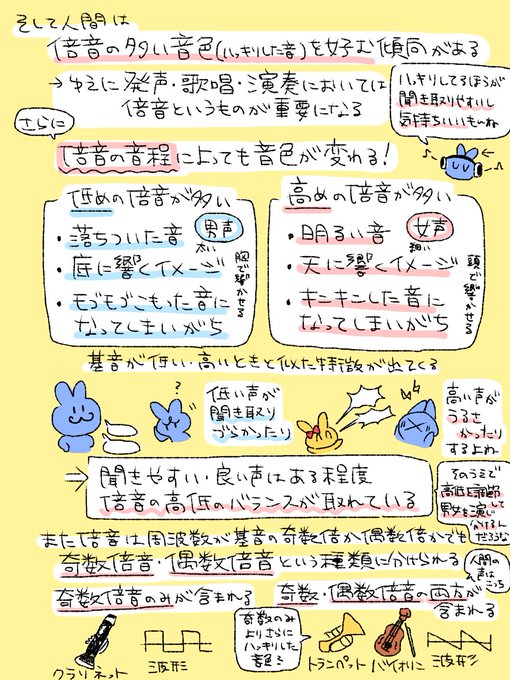 そして人間は
倍音の多い音色(ハッキリした音)を好む傾向がある
→ゆえに発声・歌唱・演奏においては
倍音というものが重要になる
ハッキリしてるほうが
聞き取りやすいし
気持ちいいもんね
さらに
倍音の音程によっても音色が変わる!
低めの倍音が多い
男声
太い
・落ちついた音
・底に響くイメージ
・モゴモゴこもった音に
なってしまいがち
胸で響かせる
高めの倍音が多い
女声
細い
・明るい音
・天に響くイメージ
・キンキンした音に
なってしまいがち
頭で響かせる
基音が低い・高いときと似た特徴が出てくる
?
低い声が
聞き取り
づらかったり
高い声が
うるさ
かったり
するよね
⇒聞きやすい・良い声はある程度
倍音の高低のバランスが取れている
そのうえで
高低を調節して
男女を演じ
分けるんだろうな
また倍音は周波数が基音の奇数倍か偶数倍かでも
奇数倍音・偶数倍音という種類に分けられる
人間の
声はこっち
奇数倍音のみが含まれる
奇数・偶数倍音の両方が
含まれる
奇数のみ
よりさらに
ハッキリした
音色に
クラリネット
波形
トランペット
バイオリン
波形